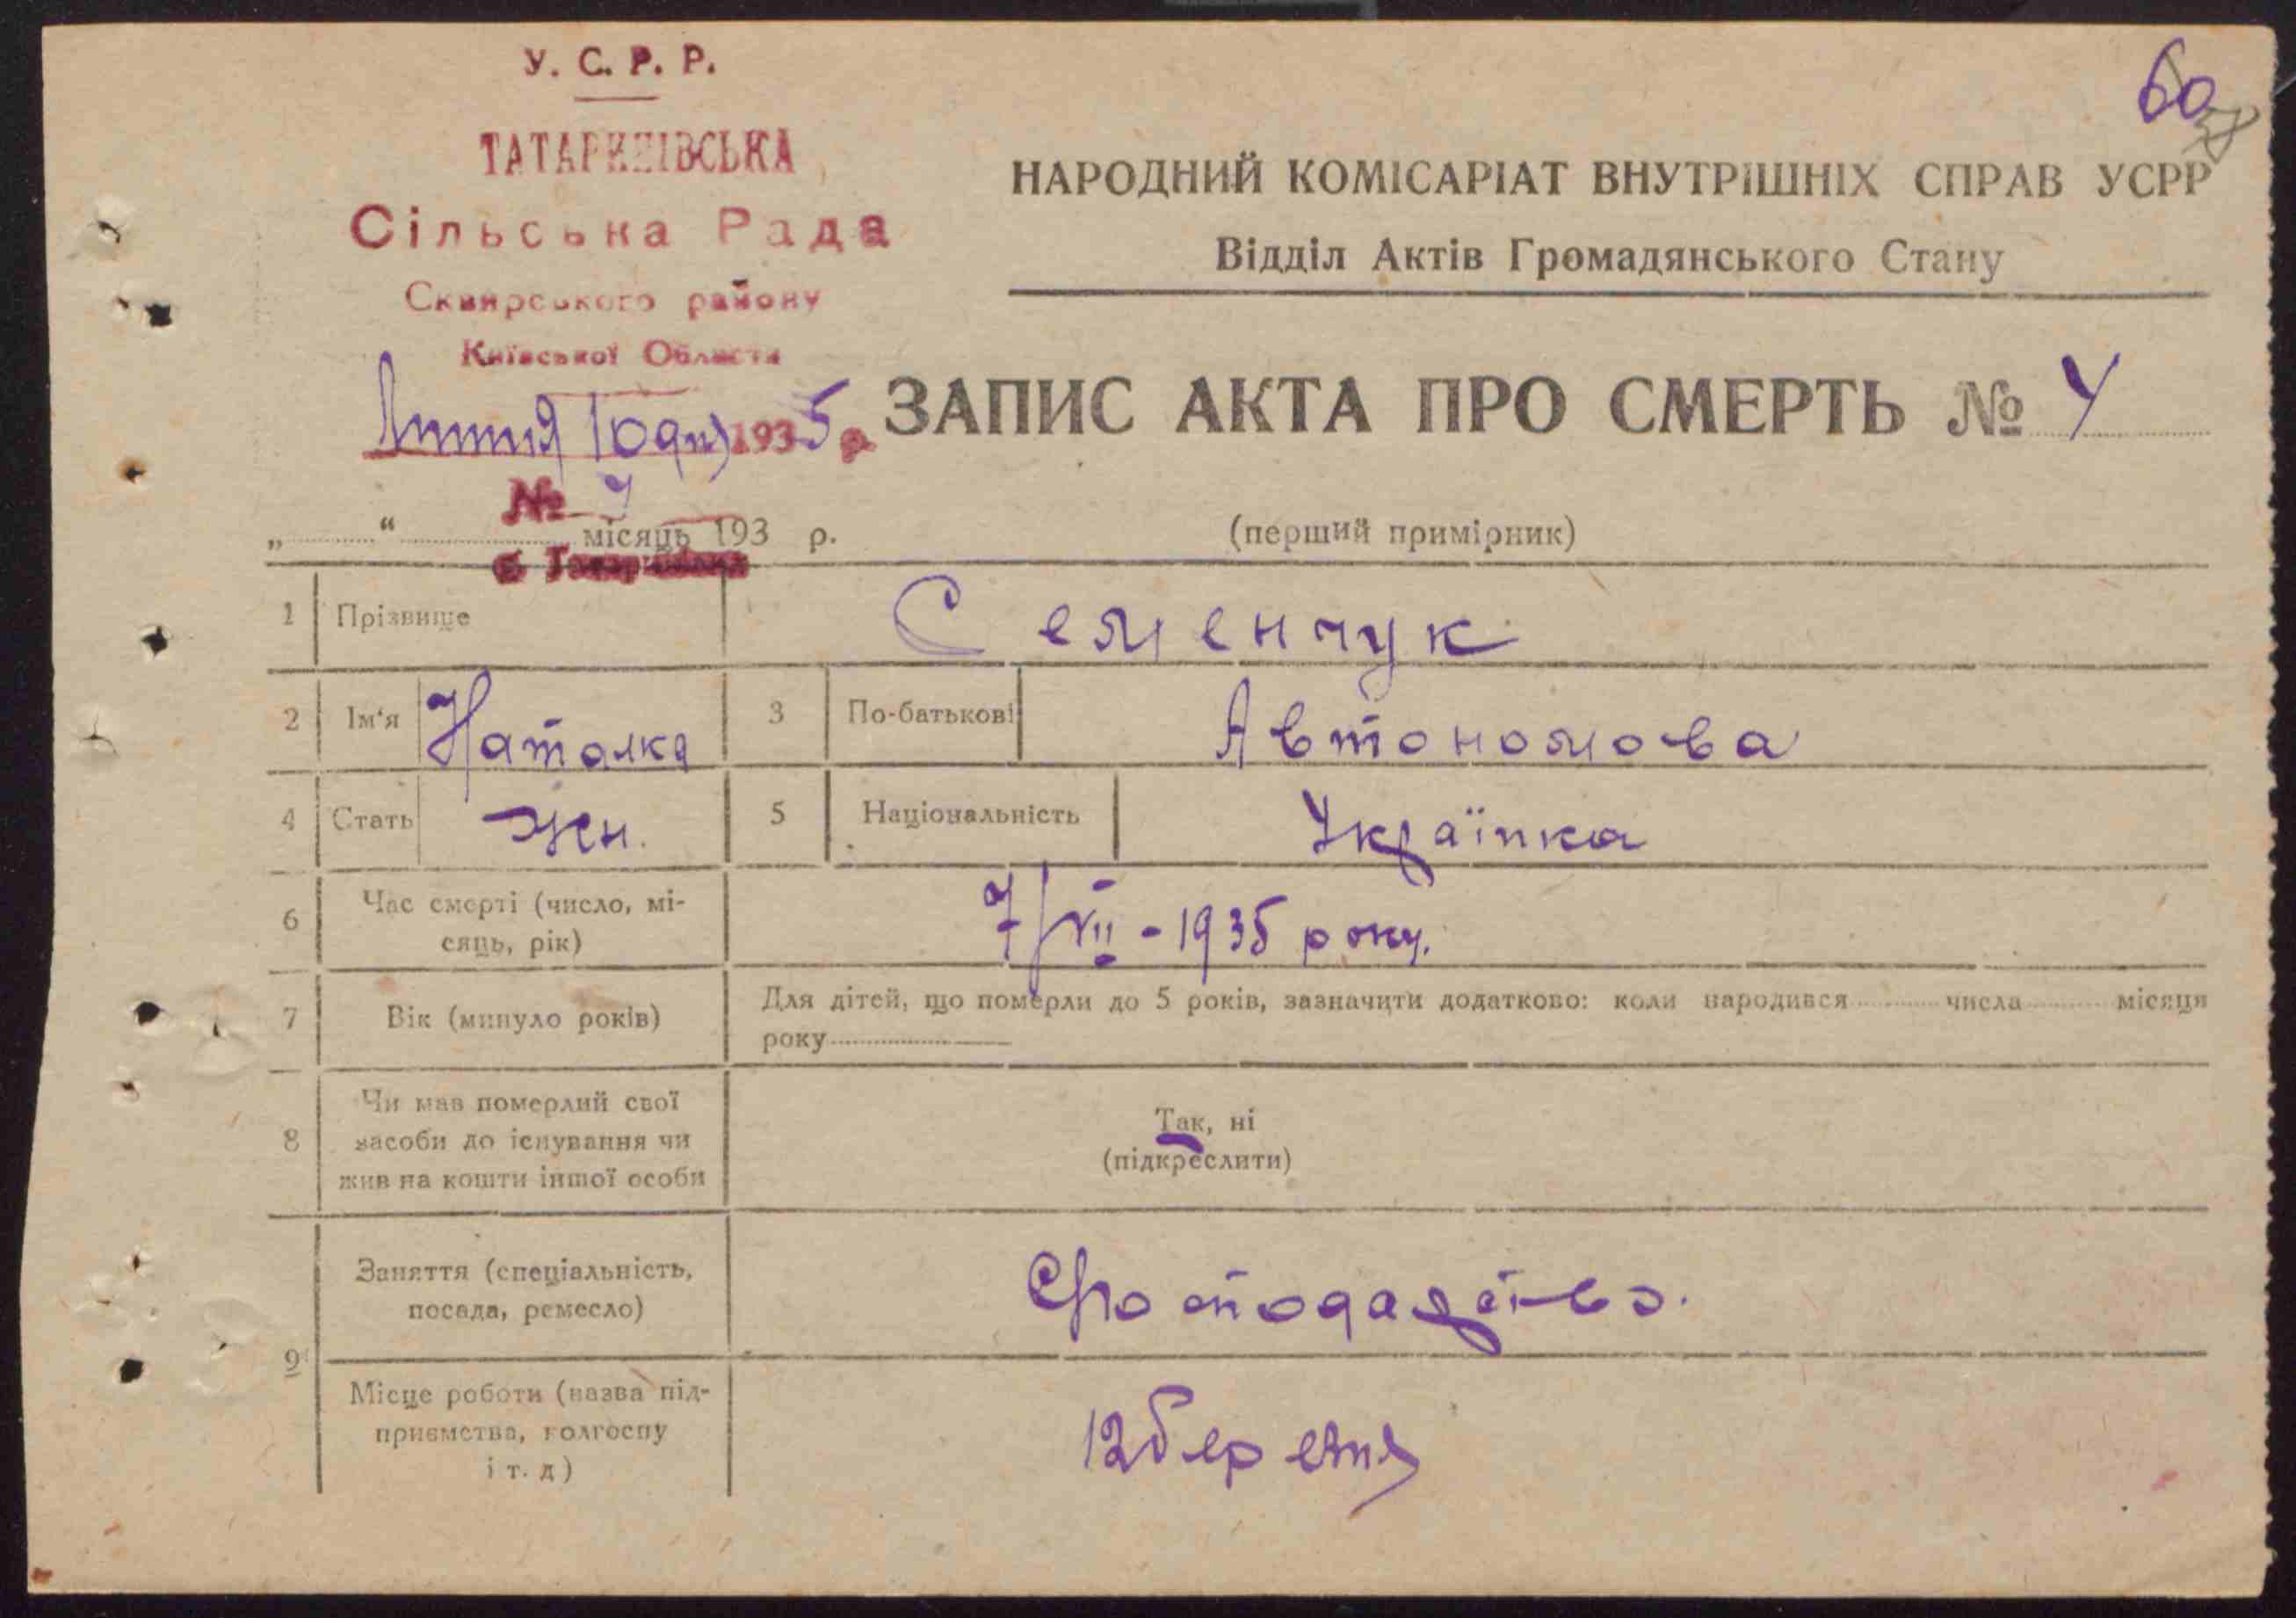 У. С. Р. Р.
60
ТАТАРИНІВСЬКА
НАРОДНИЙ КОМІСАРІАТ ВНУТРІШНІХ СПРАВ УСРР
Сільська Рада
Відділ Актів Громадянського Стану
Сквирського району
Київської Области
Липня 10 дня 1935 р.
ЗАПИС АКТА ПРО СМЕРТЬ №
№
„ “ місяць 193 р.
(перший примірник)
1 Прізвище Семенчук
2 Ім‘я Наталка 3 По-батькові Автономова
4 Стать Жен. 5 Національність Українка
6 Час смерті (число, мі-
сяць, рік) 7/VII - 1935 року.
7 Вік (минуло років) Для дітей, що померли до 5 років, зазначити додатково: коли народився числа місяця
року
8 Чи мав померлий свої
засоби до існування чи
жив на кошти іншої особи
Так, ні
(підкреслити)
9 Заняття (спеціальність,
посада, ремесло)
Місце роботи (назва під-
приємства, колгоспу
і т. д)
12 березня